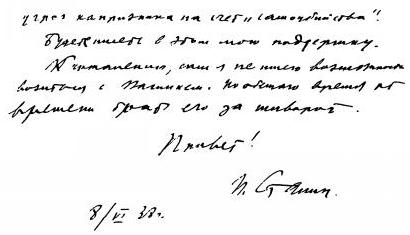 угроз капризника на счет „самоубийства".
Будете иметь в этом мою поддержку.
К сожалению, сам я не имею возможности
возиться с Но обещаю время от
времени брать его за шиворот.
Привет!
И. Сталин.
8/VI 38 г.